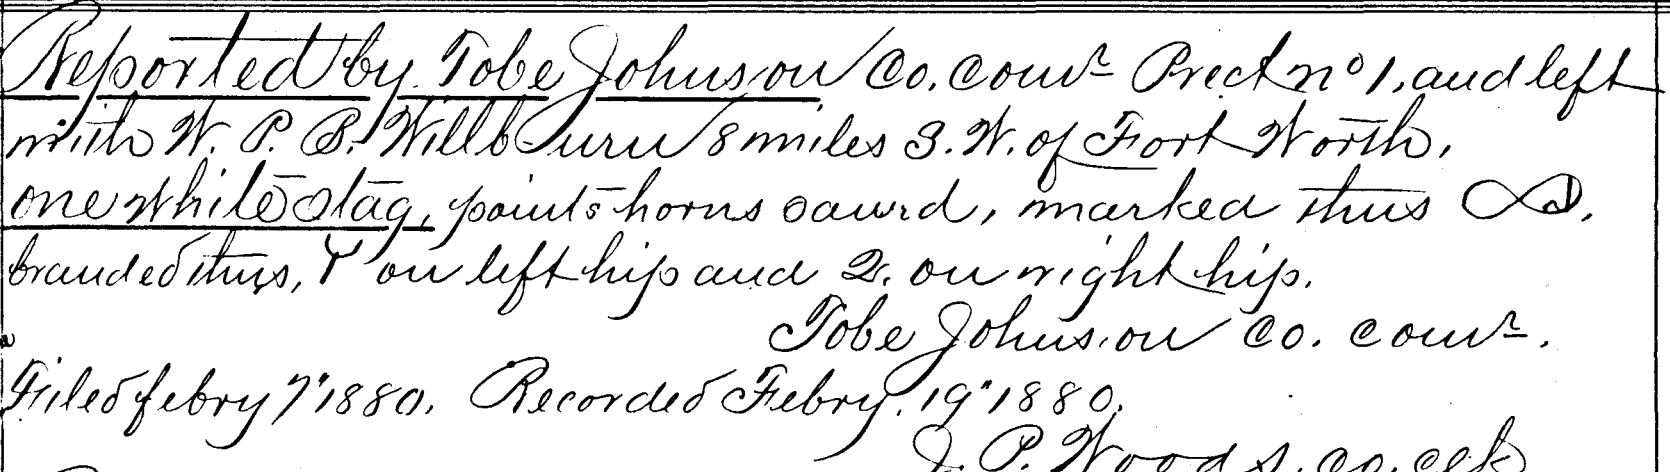 Reported by Tobe Johnson Co. Comr Prect no 1, and left
with W. P. B. Willburn 8 miles S. W. of Fort Worth,
one white Stag, points horns sawd, marked thus
branded thus, Y on left hip and 2. on right hip.
Tobe Johnson Co. Comr.
Filed febry 7" 1880. Recorded Febry. 19" 1880.
J. P. Woods. co. clk